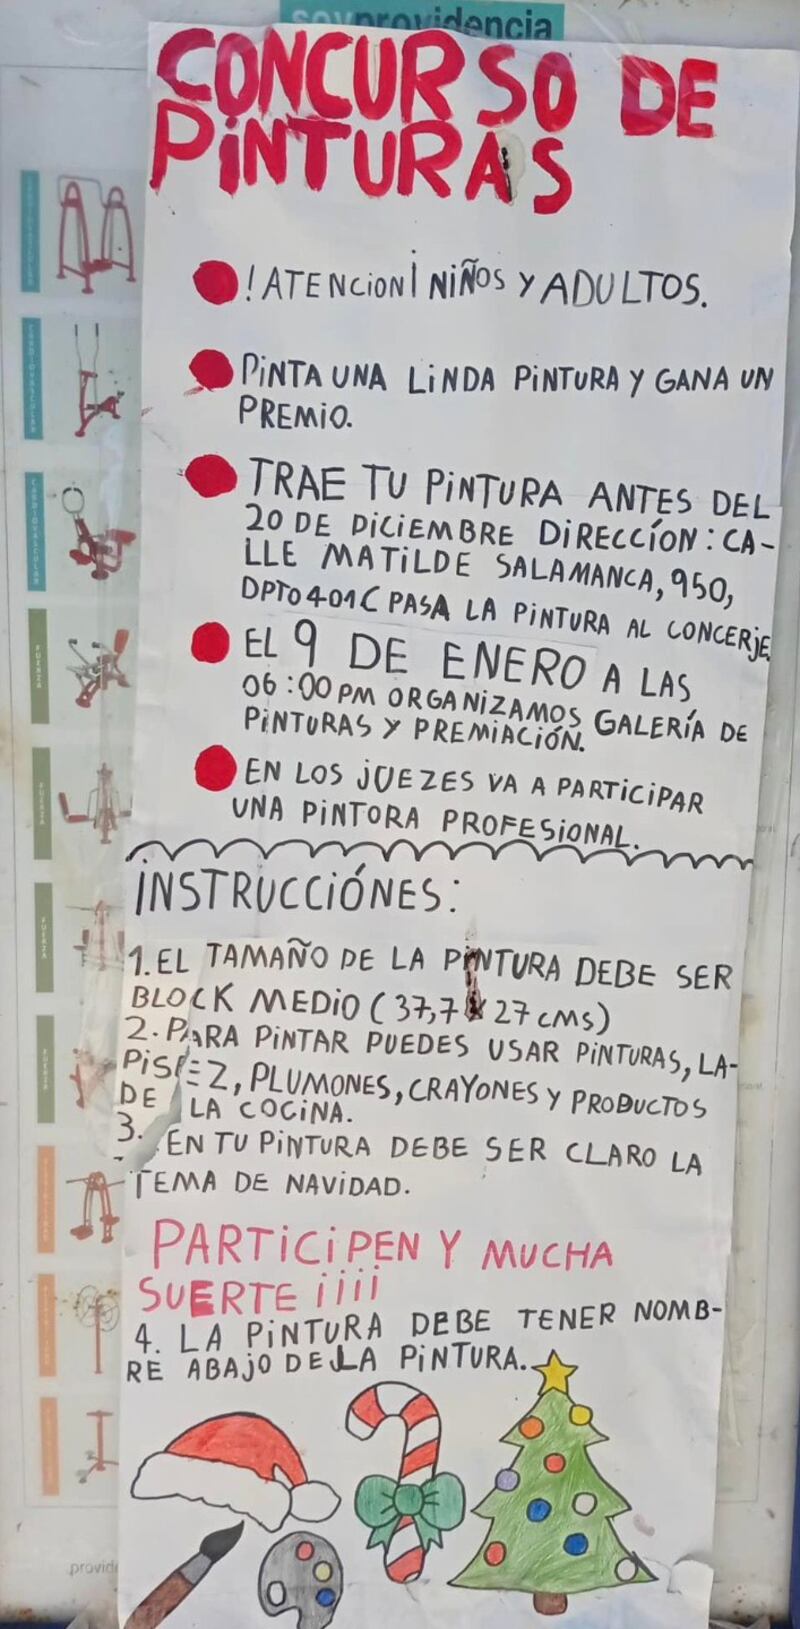 soyprovidencia
CONCURSO DE
PINTURAS
! ATENCION¡ NIÑOS Y ADULTOS.
PINTA UNA LINDA PINTURA Y GANA UN
PREMIO.
TRAE TU PINTURA ANTES DEL
20 DE DICIEMBRE DIRECCÍON: CA-
LLE MATILDE SALAMANCA, 950,
DPTO 401C PASA LA PINTURA AL CONCERJE
EL 9 DE ENERO A LAS
06:00 PM ORGANIZAMOS GALERÍA DE
PINTURAS Y PREMIACIÓN.
EN LOS JUEZES VA A PARTICIPAR
UNA PINTORA PROFESIONAL.
INSTRUCCIÓNES:
1. EL TAMAÑO DE LA PINTURA DEBE SER
BLOCK MEDIO (37,7 X 27 CMS)
2. PARA PINTAR PUEDES USAR PINTURAS, LA-
PISEZ, PLUMONES, CRAYONES Y PRODUCTOS
DE LA COCINA.
3. EN TU PINTURA DEBE SER CLARO LA
TEMA DE NAVIDAD.
PARTICIPEN Y MUCHA
SUERTE ¡¡¡¡
4. LA PINTURA DEBE TENER NOMB-
RE ABAJO DE LA PINTURA.
CARDIOVASCULAR
CARDIOVASCULAR
CARDIOVASCULAR
FUERZA
FUERZA
FUERZA
FUERZA
provide